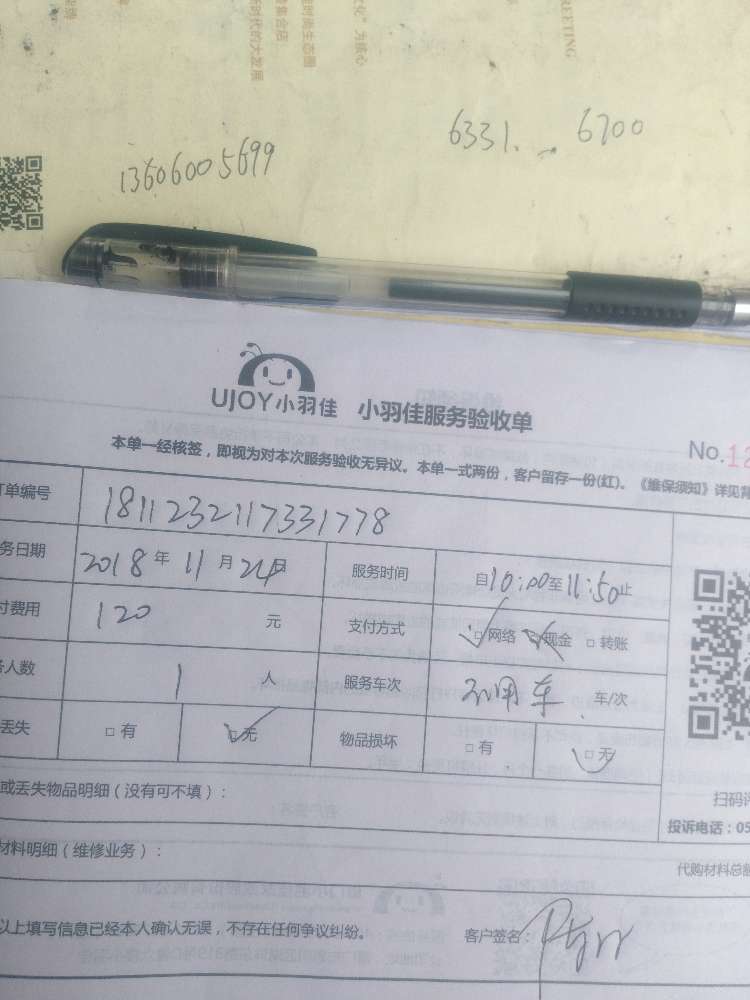 GREETING
文化”为核心
造明哲生态圈
新时代的大发展
13606005699
6331. 6700
UJOY小羽佳 小羽佳服务验收单
No.12
本单一经核签，即视为对本次服务验收无异议。本单一式两份，客户留存一份(红)。《维保须知》详见背
订单编号 1811232117331778
务日期 2018年11月24日 服务时间 自10:00至11:50止
付费用 120 元 支付方式 □网络 □现金 □转账
务人数 1 人 服务车次 不用车 车/次
丢失 □有 □无 物品损坏 □有 □无
或丢失物品明细（没有可不填）：
扫码评
投诉电话：05
材料明细（维修业务）：
代购材料总额
以上填写信息已经本人确认无误，不存在任何争议纠纷。 客户签名：